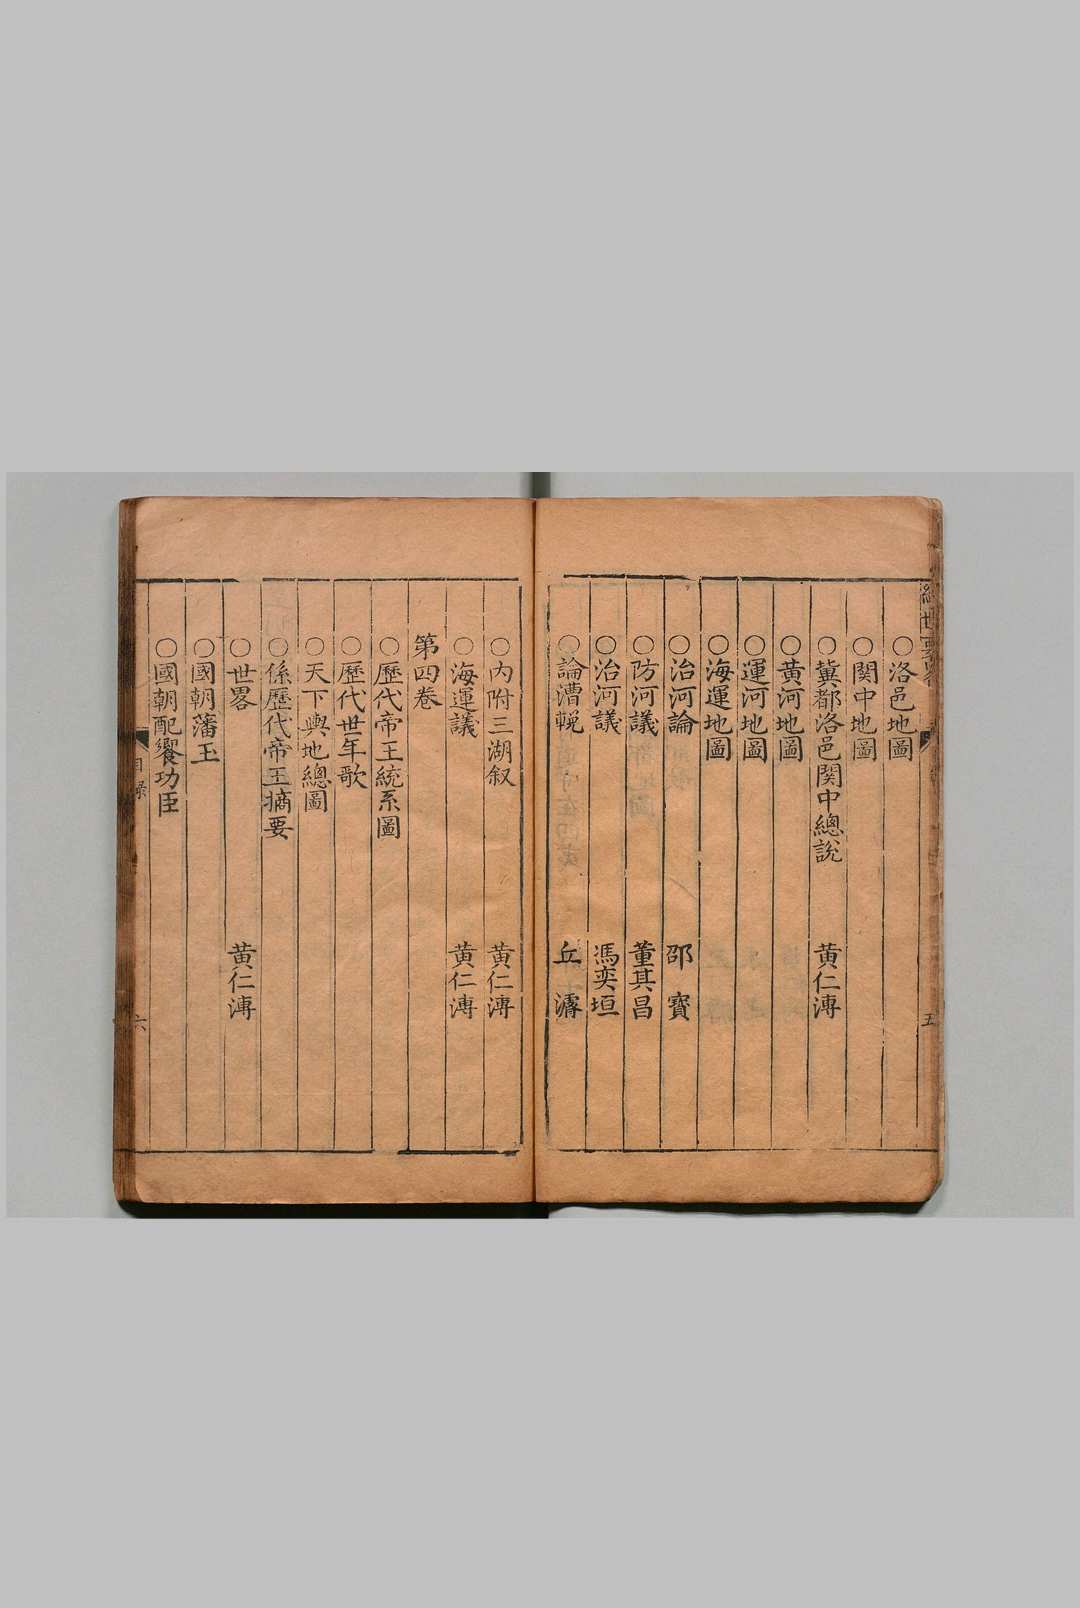 經世要畧
五
○洛邑地圖
○関中地圖
○冀都洛邑関中總說　黃仁溥
○黃河地圖
○運河地圖
○海運地圖
○治河論　邵寳
○防河議　董其昌
○治河議　馮奕垣
○論漕輓　丘濬
○內附三湖叙　黃仁溥
○海運議　黃仁溥
第四卷
○歷代帝王統系圖
○歷代世年歌
○天下輿地總圖
○係歷代帝王摘要
○世畧　黃仁溥
○國朝藩王
○國朝配饗功臣
目録
六